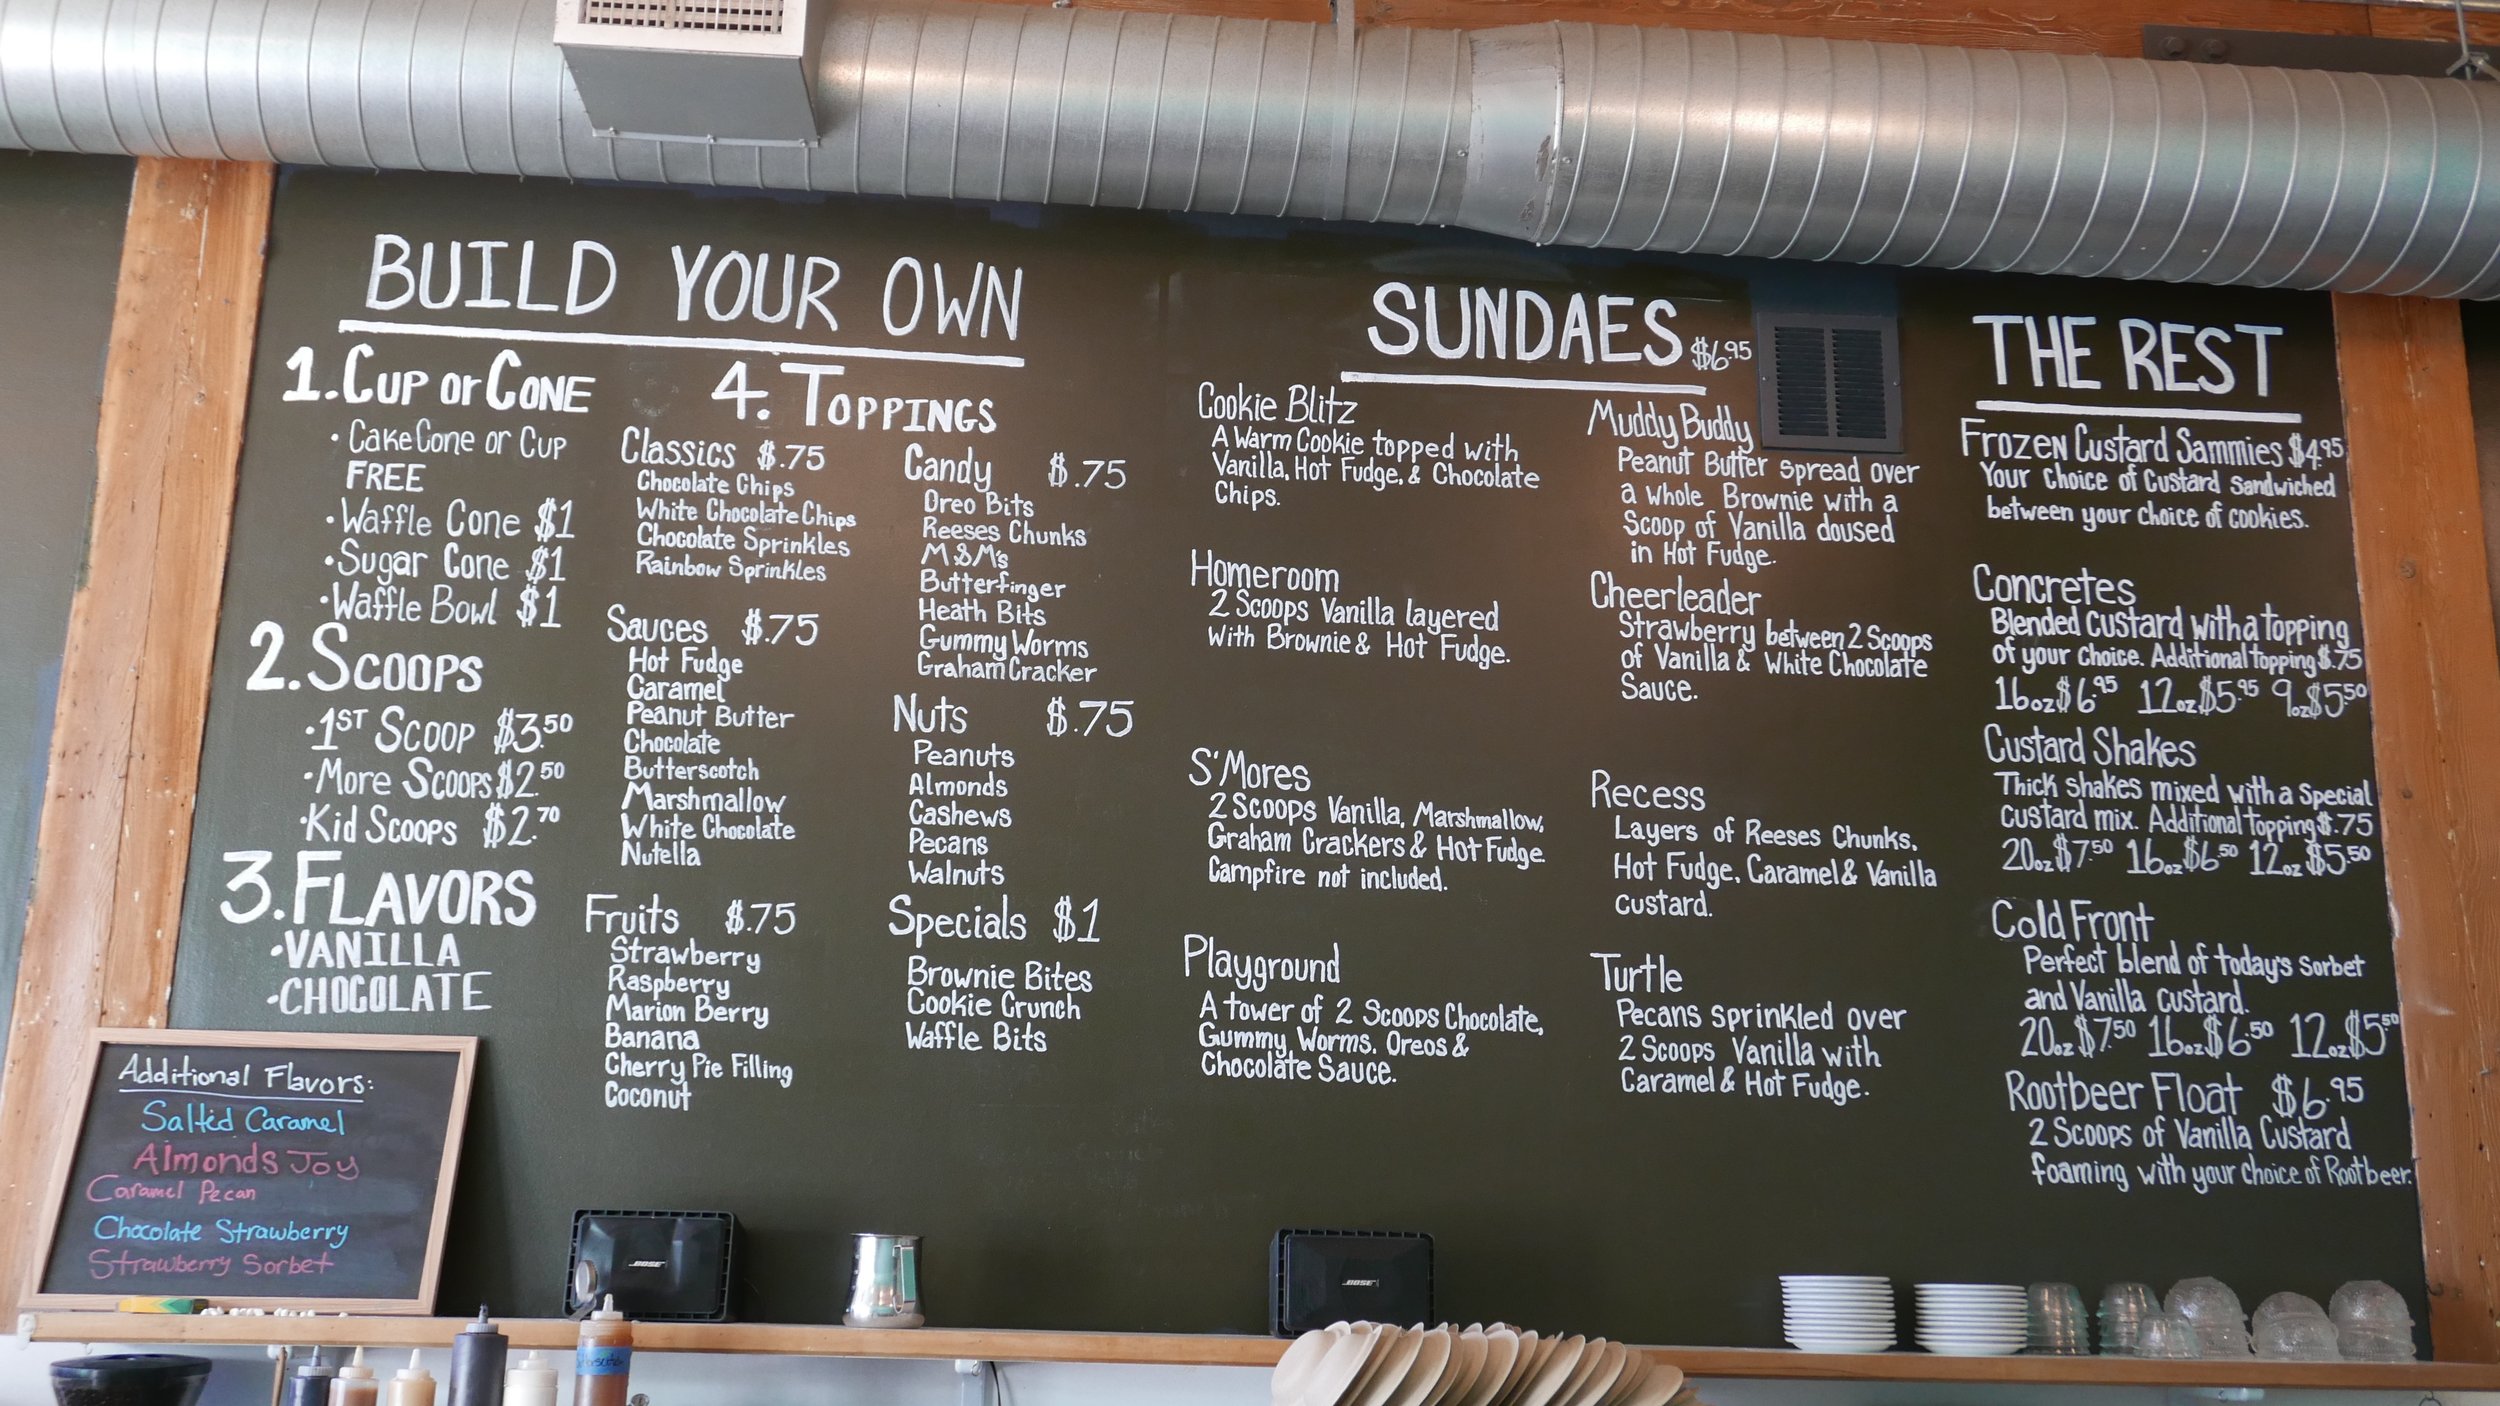 BUILD YOUR OWN
1. CUP or CONE
• Cake Cone or Cup
FREE
• Waffle Cone $1
• Sugar Cone $1
• Waffle Bowl $1
2. SCOOPS
• 1ST SCOOP $3.50
• More Scoops $2.50
• Kid Scoops $2.70
3. FLAVORS
• VANILLA
• CHOCOLATE
4. TOPPINGS
Classics $.75
Chocolate Chips
White Chocolate Chips
Chocolate Sprinkles
Rainbow Sprinkles
Sauces $.75
Hot Fudge
Caramel
Peanut Butter
Chocolate
Butterscotch
Marshmallow
White Chocolate
Nutella
Fruits $.75
Strawberry
Raspberry
Marion Berry
Banana
Cherry Pie Filling
Coconut
Candy $.75
Oreo Bits
Reeses Chunks
M&M's
Butterfinger
Heath Bits
Gummy Worms
Graham Cracker
Nuts $.75
Peanuts
Almonds
Cashews
Pecans
Walnuts
Specials $1
Brownie Bites
Cookie Crunch
Waffle Bits
SUNDAES $6.95
Cookie Blitz
A Warm Cookie topped with
Vanilla, Hot Fudge, & Chocolate
Chips.
Homeroom
2 Scoops Vanilla layered
with Brownie & Hot Fudge.
S'Mores
2 Scoops Vanilla, Marshmallow,
Graham Crackers & Hot Fudge.
Campfire not included.
Playground
A tower of 2 Scoops Chocolate,
Gummy Worms, Oreos &
Chocolate Sauce.
Muddy Buddy
Peanut Butter spread over
a whole Brownie with a
Scoop of Vanilla doused
in Hot Fudge.
Cheerleader
Strawberry between 2 Scoops
of Vanilla & White Chocolate
Sauce.
Recess
Layers of Reeses Chunks,
Hot Fudge, Caramel & Vanilla
custard.
Turtle
Pecans sprinkled over
2 Scoops Vanilla with
Caramel & Hot Fudge.
THE REST
Frozen Custard Sammies $4.95
Your choice of custard sandwiched
between your choice of cookies.
Concretes
Blended custard with a topping
of your choice. Additional topping $.75
16oz $6.95 12oz $5.95 9oz $5.50
Custard Shakes
Thick shakes mixed with a special
custard mix. Additional topping $.75
20oz $7.50 16oz $6.50 12oz $5.50
Cold Front
Perfect blend of today's sorbet
and Vanilla custard.
20oz $7.50 16oz $6.50 12oz $5.50
Rootbeer Float $6.95
2 Scoops of Vanilla Custard
foaming with your choice of Rootbeer.
Additional Flavors:
Salted Caramel
Almonds Joy
Caramel Pecan
Chocolate Strawberry
Strawberry Sorbet
BOSE
BOSE